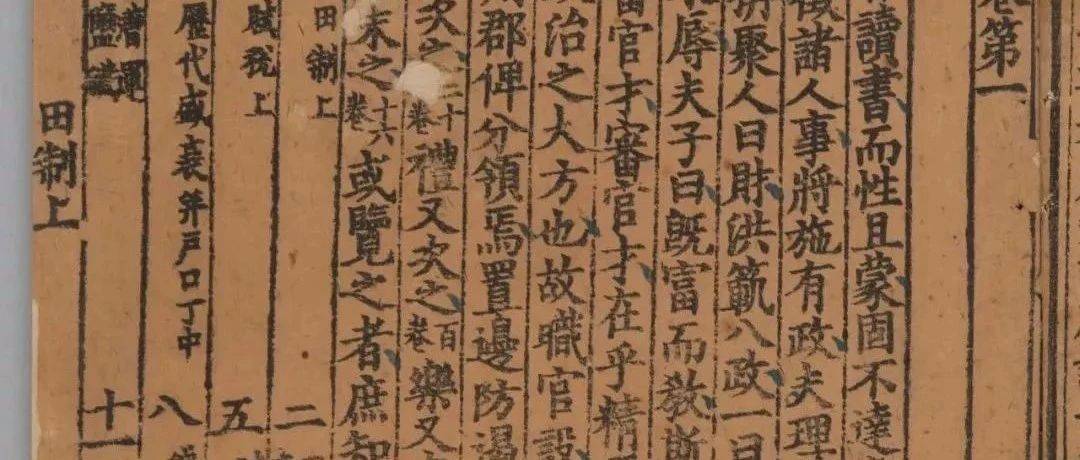 卷第一
讀書而性且蒙固不達
徵諸人事將施有政夫理
聚人曰財洪範八政一曰
辱夫子曰旣富而教斯
官才審官才在乎精
治之大方也故職官設
郡俾分領焉置邊防遏
次之二十卷禮又次之百卷樂又
末之十六卷或覽之者庶知
田制上 二
賦稅上 五
歷代盛衰并戶口丁中 八
漕運 鹽鐵 十一
田制上